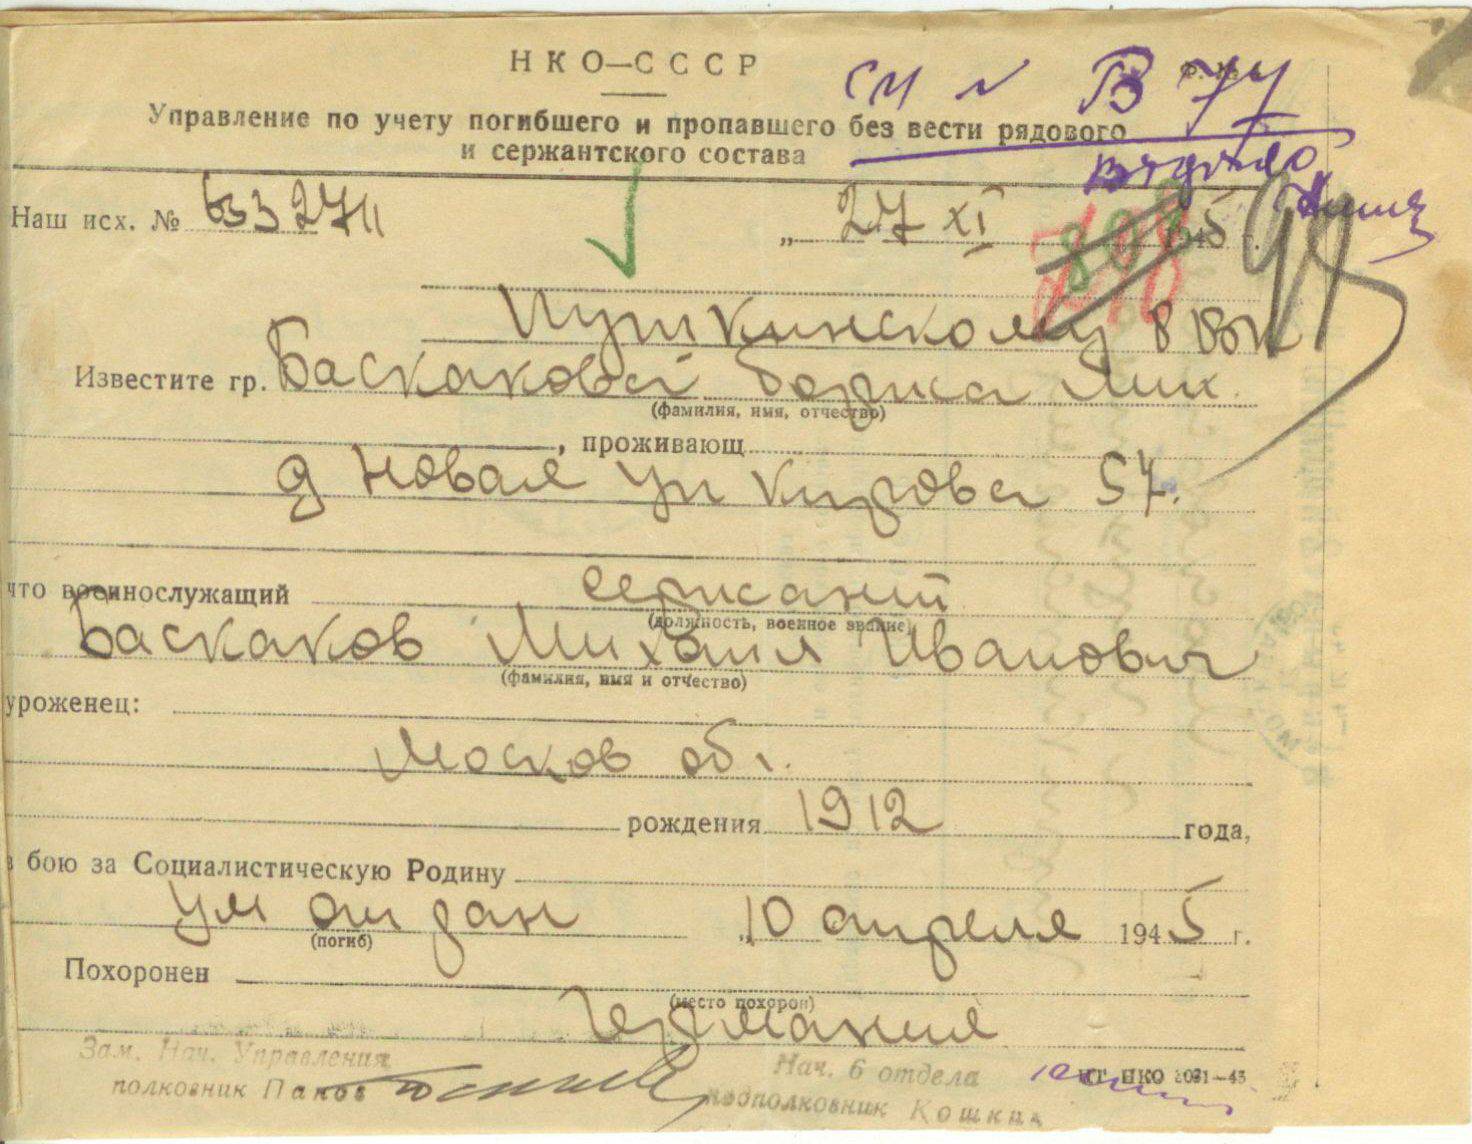 НКО—СССР
см № В 74
Управление по учету погибшего и пропавшего без вести рядового
и сержантского состава
Наш исх. № 633274
„ 27 XI 1945 г.
808
Пушкинскому РВК
Известите гр. Баскакова Бориса Мих.
(фамилия, имя, отчество)
, проживающ
д Новая ул Кирова 57.
что военнослужащий сержант
(должность, военное звание)
Баскаков Михаил Иванович
(фамилия, имя и отчество)
уроженец:
Москов обл.
рождения 1912 года,
в бою за Социалистическую Родину
ум от ран „10 апреля 1945 г.
(погиб)
Похоронен
(место похорон)
Германия
Зам. Нач. Управления
полковник Панов
Нач. 6 отдела
подполковник Кошкин